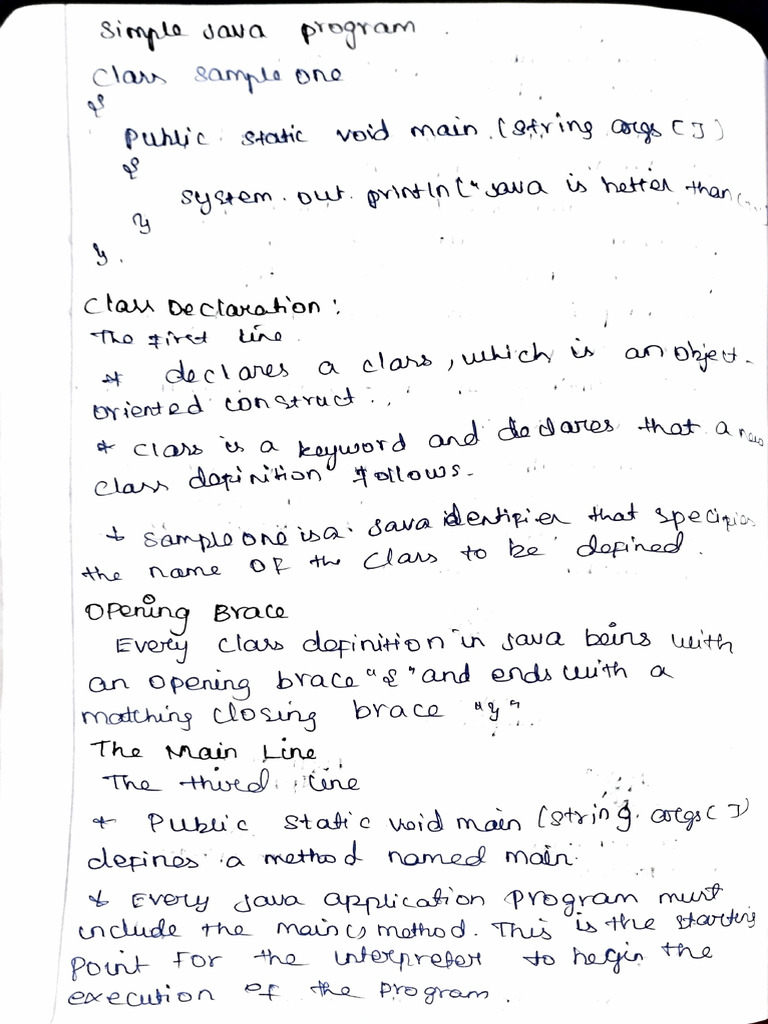 Simple Java program.
Class Sample one
{
Public static void main (String args [])
{
System. out. println ("Java is better than
}
}.
Class Declaration:
The First Line.
* declares a class, which is an object-
oriented construct.
* Class is a keyword and declares that a new
class definition follows.
* Sample one is a Java identifier that specifies
the name of the class to be defined.
Opening Brace
Every class definition in Java beins with
an opening brace "{" and ends with a
matching closing brace "}"
The Main Line
The third line
* Public static void main (String args [])
defines a method named main.
* Every Java application program must
include the main() method. This is the starting
point for the interpreter to begin the
execution of the program.